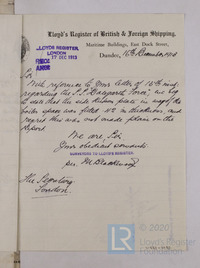 Lloyd's Register of British & Foreign Shipping,
Maritime Buildings, East Dock Street,
Dundee, 16th December 1913
LLOYDS REGISTER,
LONDON
17 DEC 1913
Sir
With reference to Your letter of 15th inst
regarding the we beg
to state that the side
boiler space was fitted in thickness and
regret this was not made plain on the
Report
We are Sir
Your obedient servants
SURVEYORS TO LLOYD'S REGISTER
per
The Secretary
London
© 2020
Lloyd's
Register
Foundation